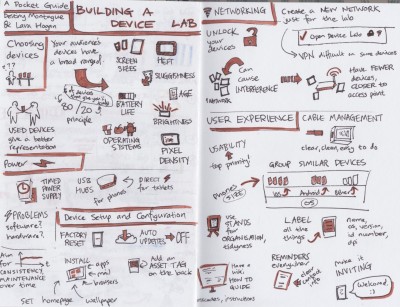 A Pocket Guide
Destiny Montague
& Lara Hogan
BUILDING A
DEVICE LAB
Choosing
devices
???
Your audiences'
devices have
a broad range!
SCREEN
SIZES
HEFT
SLUGGISHNESS
AGE
80/20
principle
BATTERY
LIFE
BRIGHTNESS
OPERATING
SYSTEMS
PIXEL
DENSITY
USED DEVICES
give a better
representation
POWER
TIMED
POWER
SUPPLY
USB
HUBS
for phones
DIRECT
for tablets
PROBLEMS
software?
hardware?
Device Setup and Configuration
FACTORY
RESET
AUTO
UPDATES → OFF
Aim
for
CONSISTENCY
MAINTENANCE
over time
INSTALL
apps
e-mail
browsers
Add an
ASSET TAG
on the back
SET homepage wallpaper
NETWORKING
Create a NEW NETWORK
just for the lab
UNLOCK
your
devices
Open Device Lab
VPN difficult on some devices
Can
cause
INTERFERENCE
Have FEWER
devices,
CLOSER to
access point
USER EXPERIENCE
CABLE MANAGEMENT
USABILITY
top priority!
clear, clean, easy to do
GROUP SIMILAR DEVICES
phone
size!
iOS Android Other
OS
Use
STANDS
for
ORGANISATION,
tidyness
LABEL
all the
things
name,
os, version,
id number,
dpi
Have a
wiki
HOW TO
GUIDE
REMINDERS
everywhere
clear
contact
info
make it
INVITING
Welcome!
:)